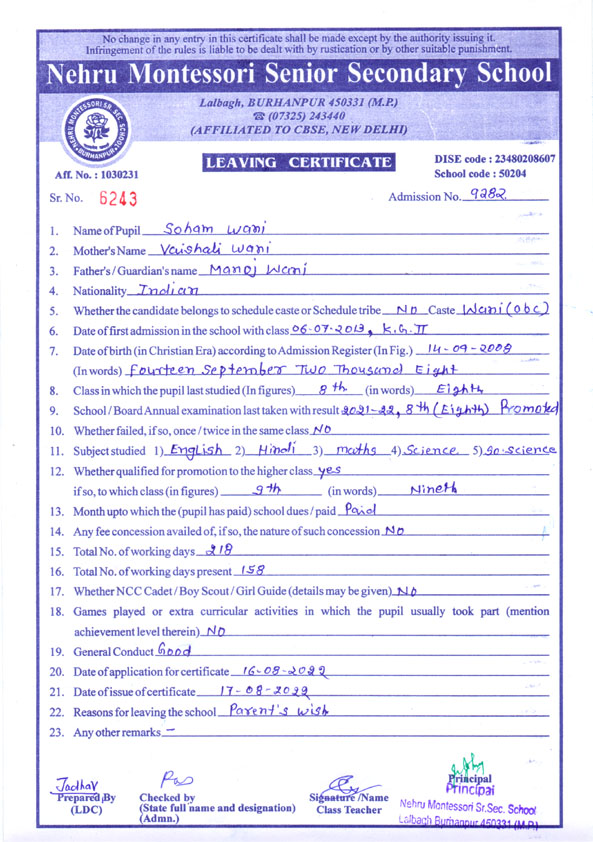 No change in any entry in this certificate shall be made except by the authority issuing it.
Infringement of the rules is liable to be dealt with by rustication or by other suitable punishment.
Nehru Montessori Senior Secondary School
Lalbagh, BURHANPUR 450331 (M.P.)
☎ (07325) 243440
(AFFILIATED TO CBSE, NEW DELHI)
NEHRU MONTESSORI SR. SEC. SCHOOL
BURHANPUR
LEAVING CERTIFICATE
DISE code : 23480208607
School code : 50204
Aff. No. : 1030231
Sr. No. 6243
Admission No. 9282
1. Name of Pupil Soham Wani
2. Mother's Name Vaishali Wani
3. Father's / Guardian's name Manoj Wani
4. Nationality Indian
5. Whether the candidate belongs to schedule caste or Schedule tribe No Caste Wani (obc)
6. Date of first admission in the school with class 06-07-2013, K.G. II
7. Date of birth (in Christian Era) according to Admission Register (In Fig.) 14-09-2008
(In words) Fourteen September Two Thousand Eight
8. Class in which the pupil last studied (In figures) 8th (in words) Eighth
9. School / Board Annual examination last taken with result 2021-22, 8th (Eighth) Promoted
10. Whether failed, if so, once / twice in the same class No
11. Subject studied 1) English 2) Hindi 3) maths 4) Science 5) so-science
12. Whether qualified for promotion to the higher class yes
if so, to which class (in figures) 9th (in words) Nineth
13. Month upto which the (pupil has paid) school dues / paid Paid
14. Any fee concession availed of, if so, the nature of such concession No
15. Total No. of working days 218
16. Total No. of working days present 158
17. Whether NCC Cadet / Boy Scout / Girl Guide (details may be given) No
18. Games played or extra curricular activities in which the pupil usually took part (mention
achievement level therein) No
19. General Conduct Good
20. Date of application for certificate 16-08-2022
21. Date of issue of certificate 17-08-2022
22. Reasons for leaving the school Parent's wish
23. Any other remarks —
Jadhav
Prepared By
(LDC)
Checked by
(State full name and designation)
(Admn.)
Signature /Name
Class Teacher
Principal
Principal
Nehru Montessori Sr.Sec. School
Lalbagh Burhanpur 450331 (M.P.)